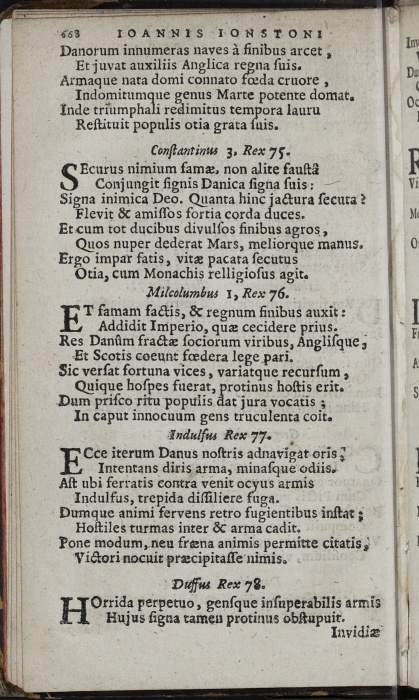 668 IOANNIS IONSTONI
Danorum innumeras naves à finibus arcet,
Et juvat auxiliis Anglica regna ſuis.
Armaque nata domi connato fœda cruore,
Indomitumque genus Marte potente domat.
Inde triumphali redimitus tempora lauru
Reſtituit populis otia grata ſuis.
Conſtantinus 3, Rex 75.
SEcurus nimium famæ, non alite fauſtâ
Conjungit ſignis Danica ſigna ſuis:
Signa inimica Deo. Quanta hinc jactura ſecuta?
Flevit & amiſſos fortia corda duces.
Et cum tot ducibus divulſos finibus agros,
Quos nuper dederat Mars, meliorque manus.
Ergo impar fatis, vitæ pacata ſecutus
Otia, cum Monachis relligioſus agit.
Milcolumbus 1, Rex 76.
ET famam factis, & regnum finibus auxit:
Addidit Imperio, quæ cecidere prius.
Res Danûm fractæ ſociorum viribus, Angliſque,
Et Scotis coeunt fœdera lege pari.
Sic verſat fortuna vices, variatque recurſum,
Quique hoſpes fuerat, protinus hoſtis erit.
Dum priſco ritu populis dat jura vocatis;
In caput innocuum gens truculenta coit.
Indulfus Rex 77.
ECce iterum Danus noſtris adnavigat oris;
Intentans diris arma, minaſque odiis.
Aſt ubi ferratis contra venit ocyus armis
Indulfus, trepida diſſiliere fuga.
Dumque animi fervens retro fugientibus inſtat;
Hoſtiles turmas inter & arma cadit.
Pone modum, neu fræna animis permitte citatis,
Victori nocuit præcipitaſſe nimis.
Duffus Rex 78.
HOrrida perpetuo, genſque inſuperabilis armis
Hujus ſigna tamen protinus obſtupuit.
Invidiæ